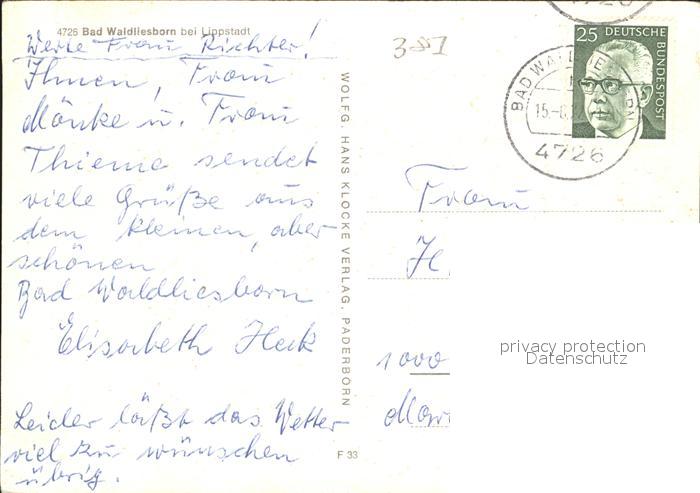 4726 Bad Waldliesborn bei Lippstadt
Werte Frau Richter!
Ihnen, Frau
Mönke u. Frau
Thieme sendet
viele Grüße aus
dem kleinen, aber
schönen
Bad Waldliesborn
Elisabeth Heck
Leider läßt das Wetter
viel zu wünschen
übrig.
WOLFG. HANS KLOCKE VERLAG, PADERBORN
F 33
381
25 DEUTSCHE
BUNDESPOST
BAD WALDLIESBORN
15.-6.
4726
Frau
1000
privacy protection
Datenschutz